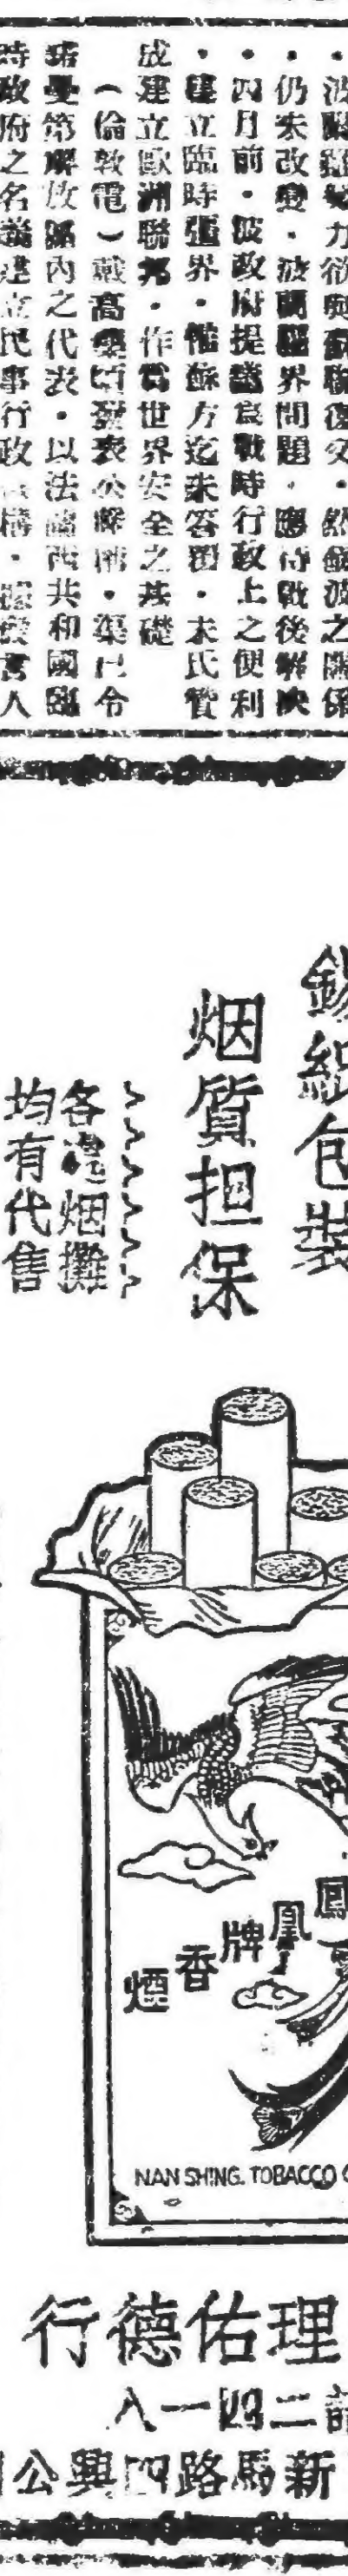 波蘭雖努力欲與蘇聯復交・然蘇波之關係
仍未改變・波蘭疆界問題・應待戰後解決
・四月前・波政府提議爲戰時行政上之便利
・建立臨時疆界・惟蘇方迄未答覆・末氏贊
成建立歐洲聯邦・作爲世界安全之基礎
(倫敦電)戴高樂頃發表公報・渠已令
諾曼第解放區內之代表・以法蘭西共和國臨
時政府之名義建立民事行政構・發言人
錫紙包裝
烟質担保
各烟攤
均有代售
鳳凰牌香煙
NAN SHING. TOBACCO
理佑德行
二四一八
新馬路四興公